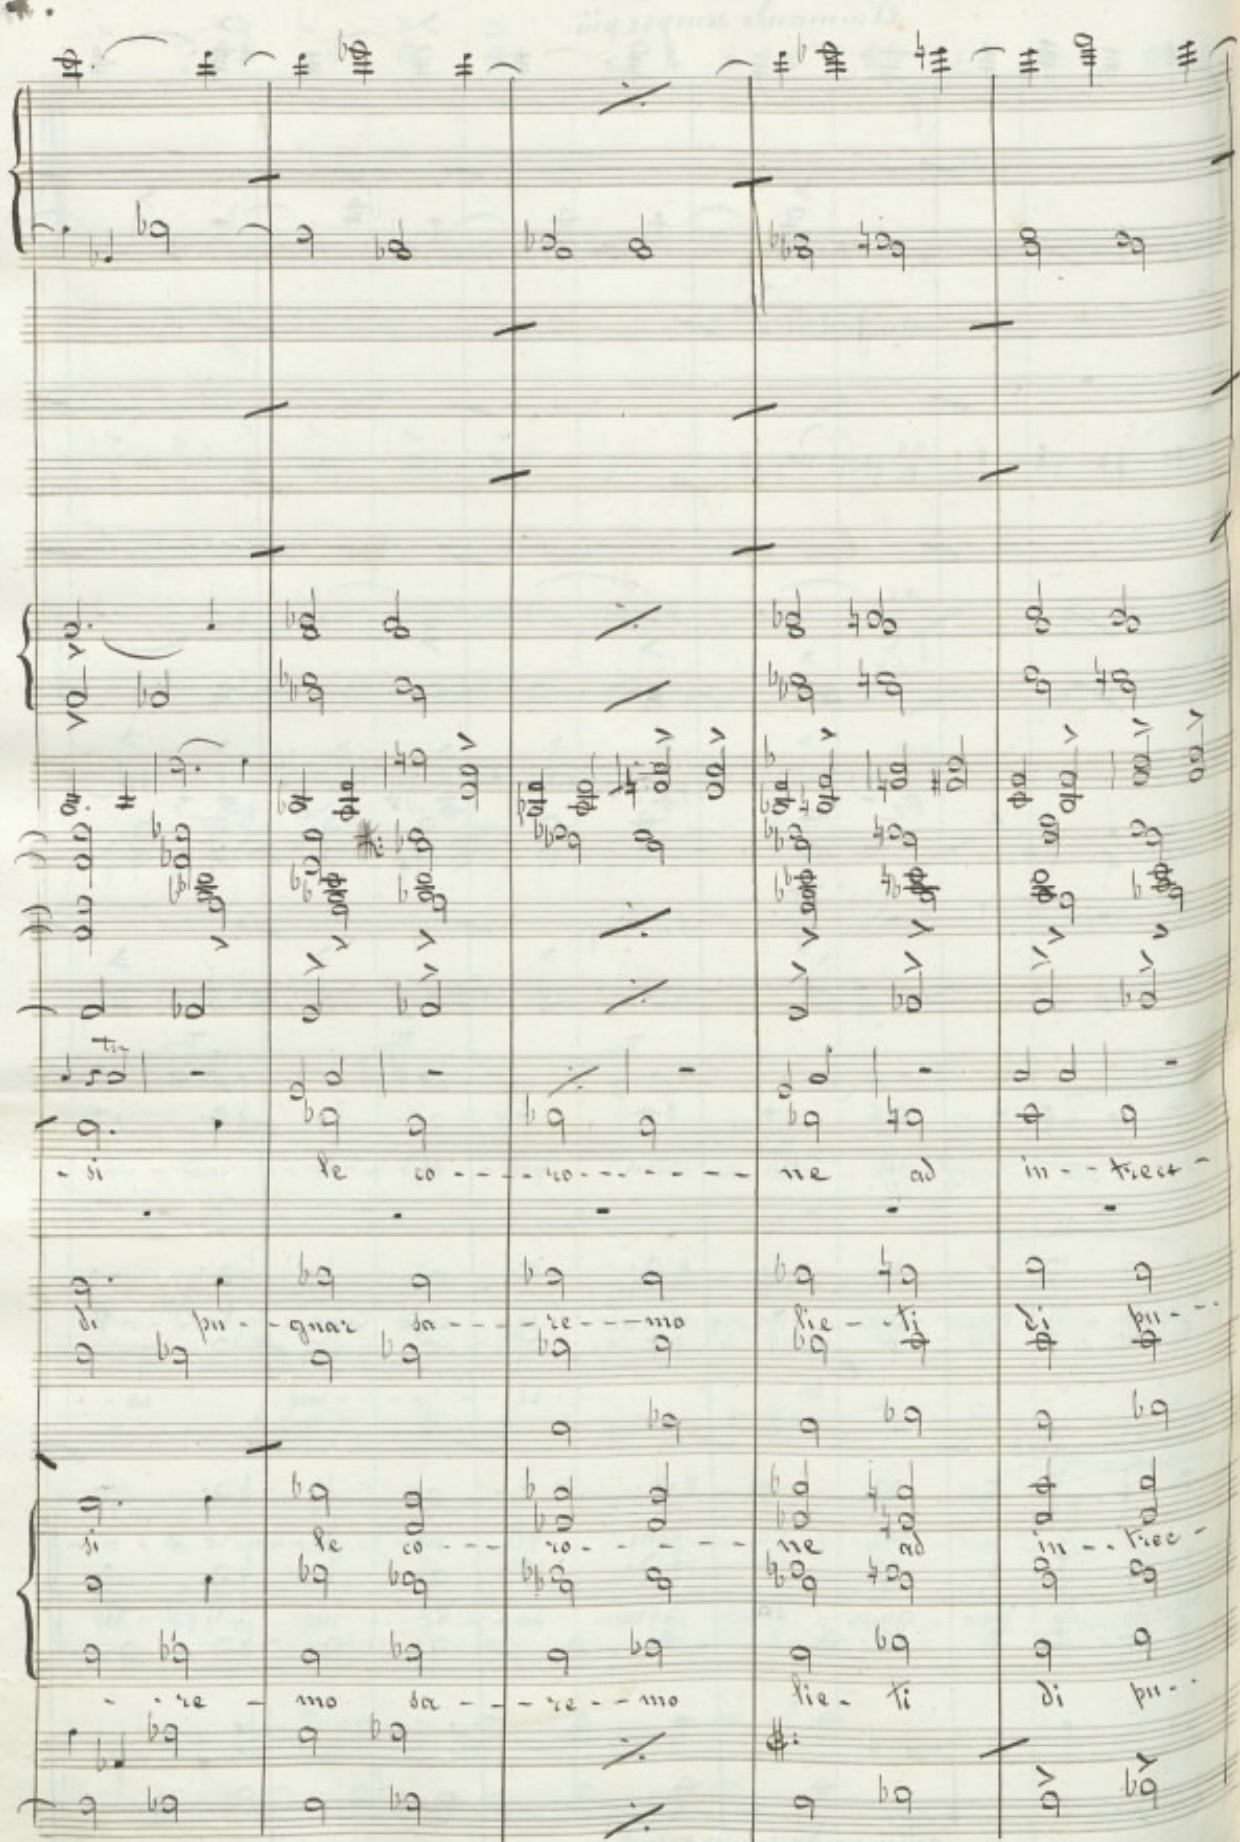 tr
- si le co - - - - ro - - - - - - - ne ad in - - trecc -
di pu - - gnar sa - - - - re - - - mo lie - - ti di pu - - -
si le co - - - ro - - - - - ne ad in - - trec -
- - re - mo sa - - - re - - mo lie - ti di pu - - -